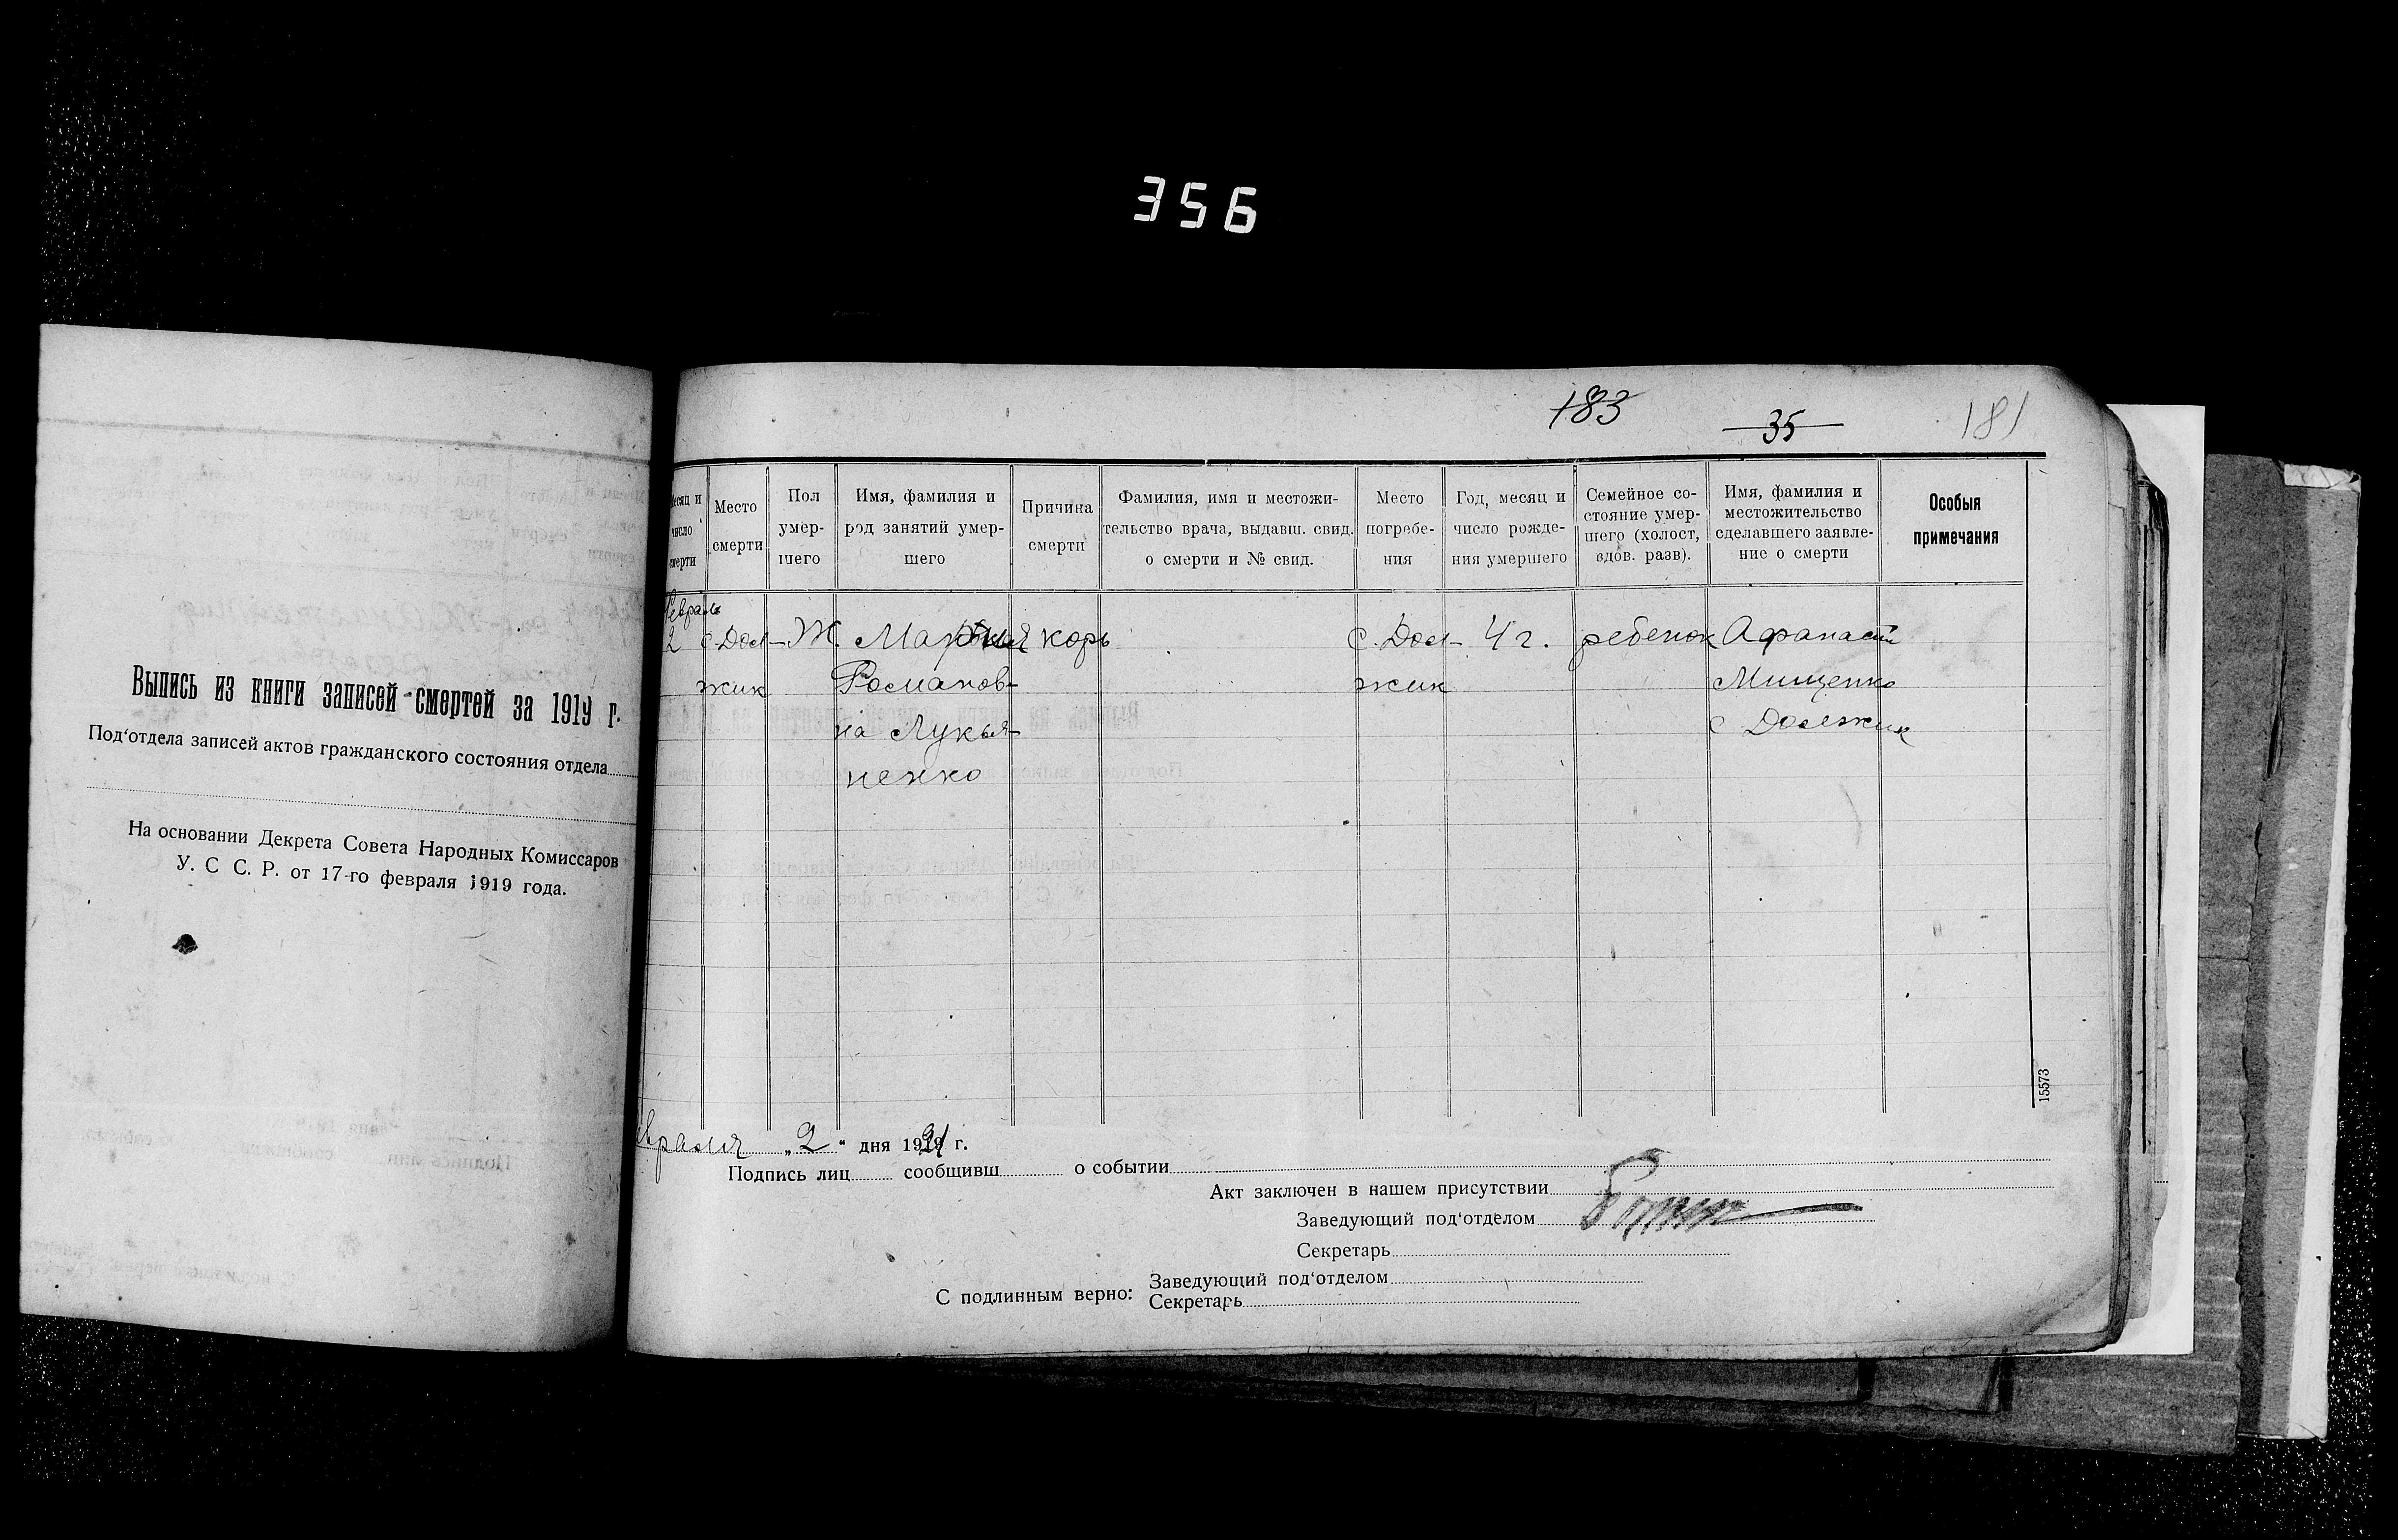 356
183
35
181
Выпись из книги записей смертей за 1919 г.
Под'отдела записей актов гражданского состояния отдела
На основании Декрета Совета Народных Комиссаров
У. С С. Р. от 17-го февраля 1919 года.
Месяц и число смерти
Место смерти
Пол умер-
шего
Имя, фамилия и
род занятий умер-
шего
Причина
смерти
Фамилия, имя и местожи-
тельство врача, выдавш. свид.
о смерти и № свид.
Место
погребе-
ния
Год, месяц и
число рожде-
ния умершего
Семейное со-
стояние умер-
шего (холост,
вдов. разв).
Имя, фамилия и
местожительство
сделавшего заявле-
ние о смерти
Особыя
примечания
Февраль
2 с. Дол- Ж. корь с. Дол- 4 г. ребенок Афанасий
жик Романов- жик Мищенко
на Лукья- с Должик
ненко
евраля „2" дня 1921 г.
Подпись лиц сообщивш о событии
Акт заключен в нашем присутствии
Заведующий под'отделом
Секретарь
С подлинным верно: Заведующий под'отделом
Секретарь
15573